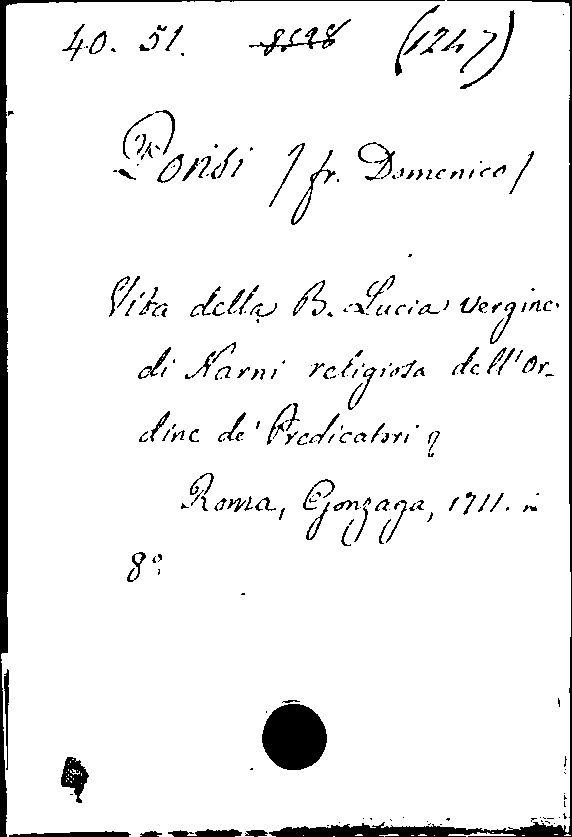 40. 51. 8598 (1247)
Ponsi / fr. Domenico /
Vita della B. Lucia vergine
di Narni religiosa dell'Or-
dine de' Predicatori
Roma, Gonzaga, 1711. in
8°